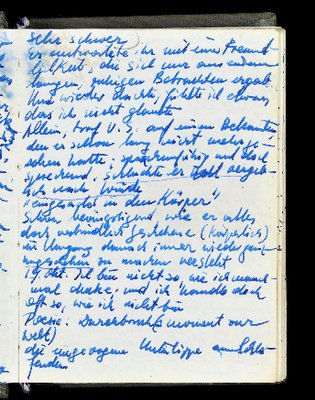 Sehr schwer)
Er antwortete ihr mit einer Freund-
lichkeit, die sich nur aus einem
langen, ruhigen Betrachten ergab
Und wieder dachte, fühlte ich etwas,
das ich nicht glaubte
Allein, traf V. S. auf einen Bekannten
den er schon lang nicht mehr ge-
sehen hatte: sprachunfähig und doch
sprechend, suchte er voll vergeb-
lich nach Würde
"eingesargt in den Körper"
Schon beunruhigend, wie er alles
doch verbindlich Geschehene (Körperlich)
im Umgang danach immer wieder
ungeschehen zu machen versteht
19. Okt. Ich bin nicht so, wie ich manch-
mal denke: und ich handle doch
oft so, wie ich nicht bin
Poesie: Durchbruchsmoment zur
Welt)
die eingezogene Unterlippe am